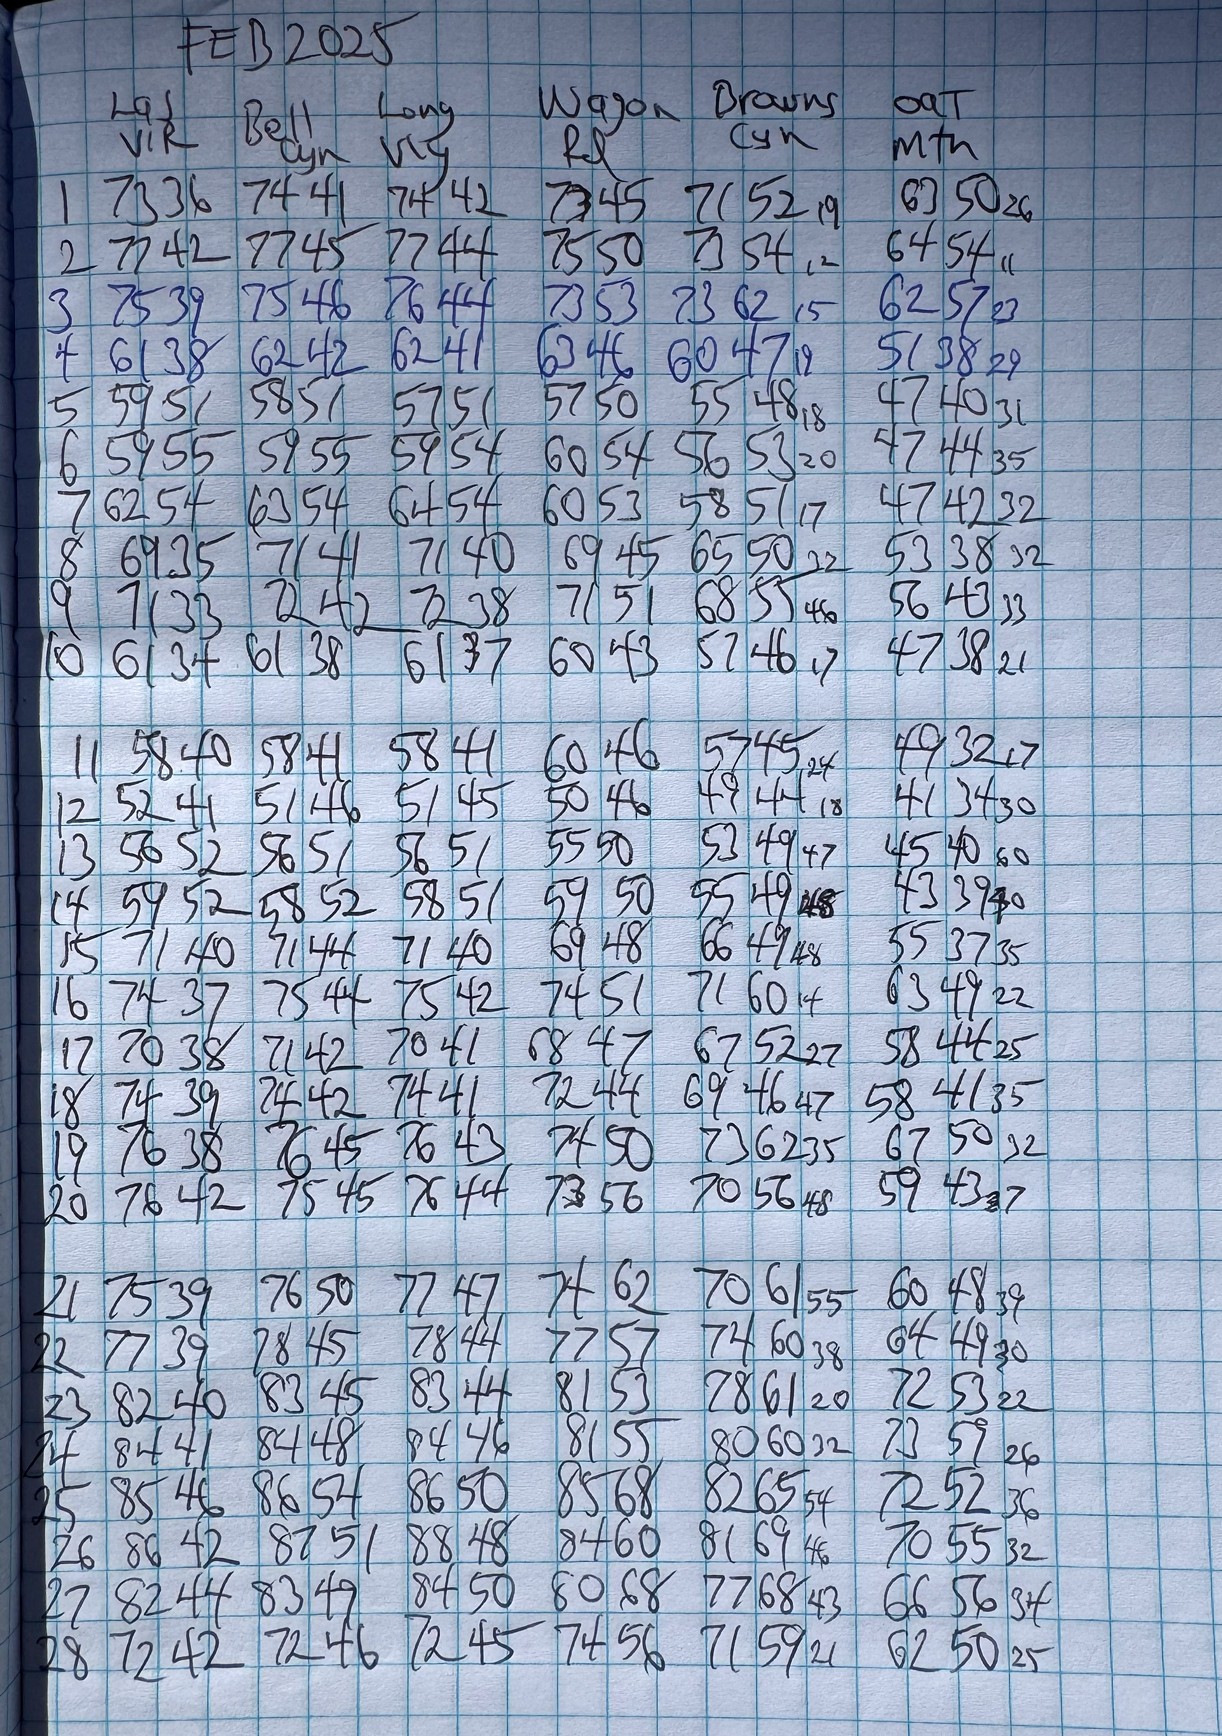 FEB 2025
Las Bell Long Wagon Browns oat
VIR Cyn Vly Rd Cyn Mtn
1 73 36 74 41 74 42 73 45 71 52 19 63 50 26
2 77 42 77 45 77 44 75 50 73 54 12 64 54 11
3 75 39 75 46 76 44 73 53 73 62 15 62 57 23
4 61 38 62 42 62 41 63 46 60 47 19 51 38 29
5 59 51 58 51 57 51 57 50 55 48 18 47 40 31
6 59 55 59 55 59 54 60 54 56 53 20 47 44 35
7 62 54 63 54 64 54 60 53 58 51 17 47 42 32
8 69 35 71 41 71 40 69 45 65 50 32 53 38 32
9 71 33 72 42 72 38 71 51 68 55 46 56 43 33
10 61 34 61 38 61 37 60 43 57 46 17 47 38 21
11 58 40 58 41 58 41 60 46 57 45 24 49 32 17
12 52 41 51 46 51 45 50 46 49 44 18 41 34 30
13 56 52 56 51 56 51 55 50 53 49 47 45 40 60
14 59 52 58 52 58 51 59 50 55 49 48 43 39
15 71 40 71 44 71 40 69 48 66 49 48 55 37 35
16 74 37 75 44 75 42 74 51 71 60 14 63 49 22
17 70 38 71 42 70 41 68 47 67 52 27 58 44 25
18 74 39 74 42 74 41 72 44 69 46 47 58 41 35
19 76 38 76 45 76 43 74 50 73 62 35 67 50 32
20 76 42 75 45 76 44 73 56 70 56 48 59 43 37
21 75 39 76 50 77 47 74 62 70 61 55 60 48 39
22 77 39 78 45 78 44 77 57 74 60 38 64 49 30
23 82 40 83 45 83 44 81 53 78 61 20 72 53 22
24 84 41 84 48 84 46 81 55 80 60 32 73 59 26
25 85 46 86 54 86 50 85 68 82 65 54 72 52 36
26 86 42 87 51 88 48 84 60 81 69 46 70 55 32
27 82 44 83 49 84 50 80 68 77 68 43 66 56 34
28 72 42 72 46 72 45 74 56 71 59 21 62 50 25